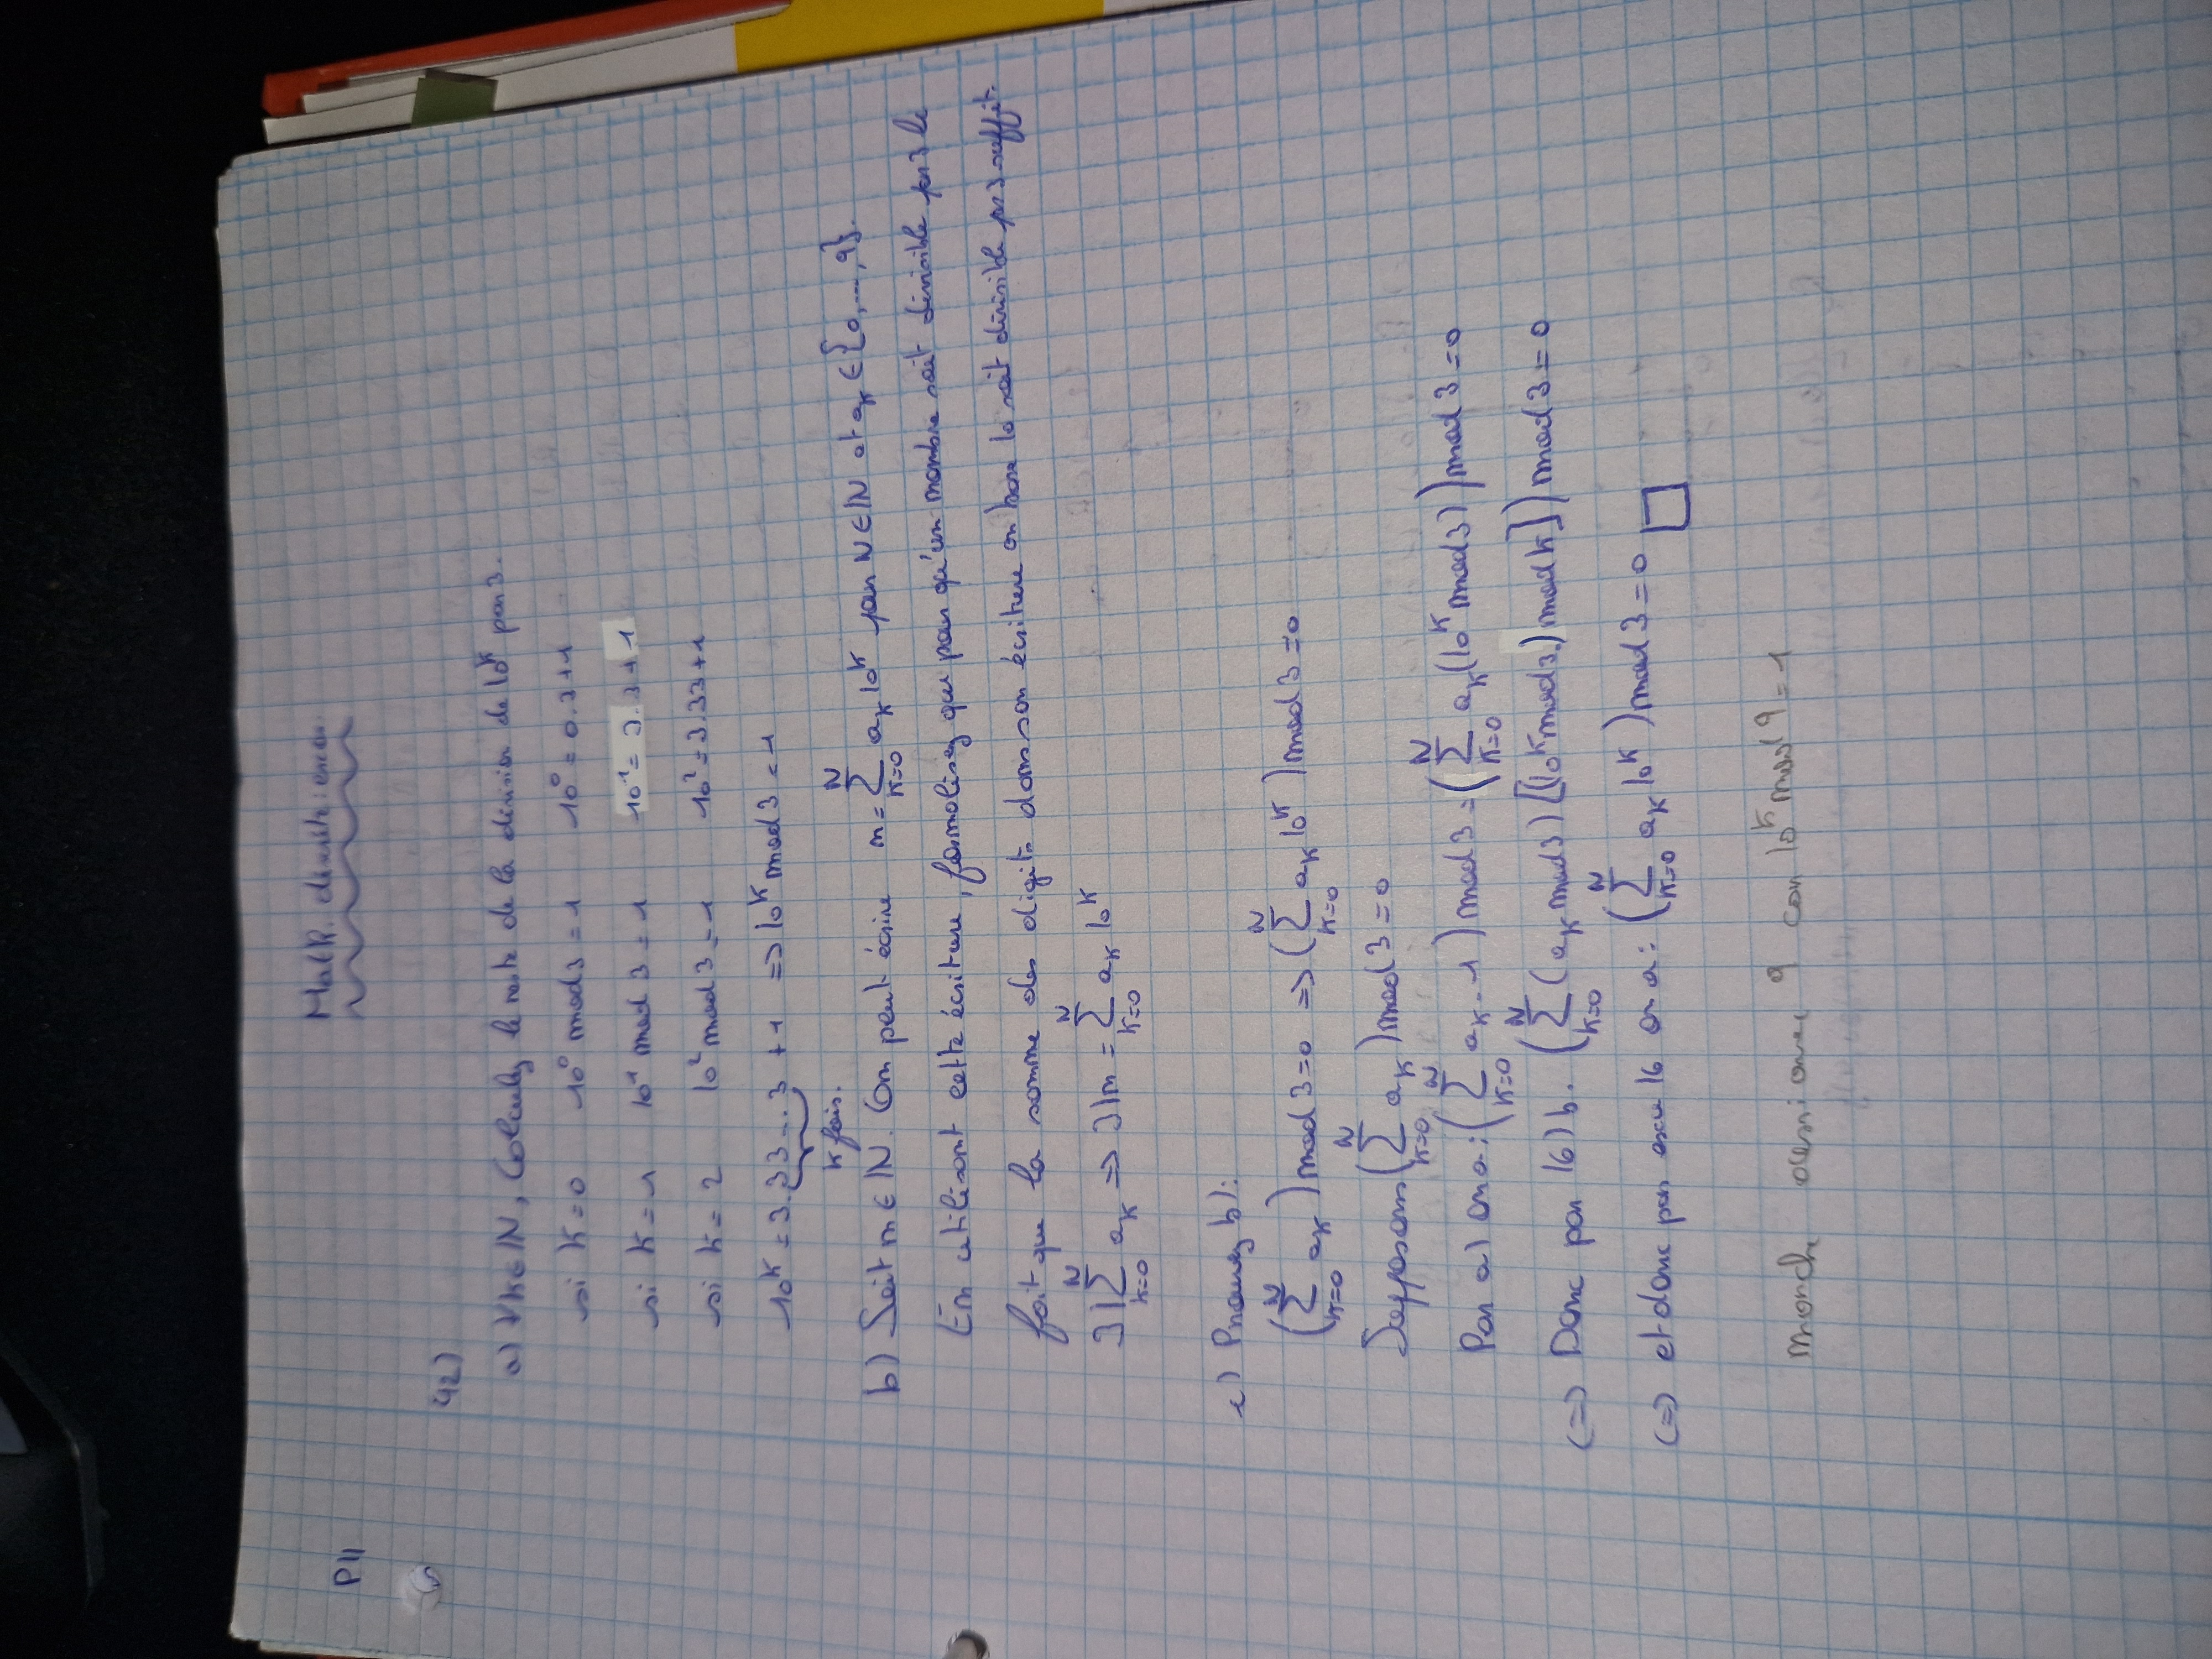 Math. discrète: exercices.
P11
42)
a) ∀k∈ℕ, Calculez le reste de la division de 10^k par 3.
si k=0 10^0 mod 3 = 1 10^0 = 0.3+1
si k=1 10^1 mod 3 = 1 10^1 = 3.3+1
si k=2 10^2 mod 3 = 1 10^2 = 3.33+1
10^k = 3.33...3 + 1 => 10^k mod 3 = 1
k fois.
b) Soit n∈ℕ. On peut écrire n = ∑_{k=0}^{N} a_k 10^k pour N∈ℕ et a_k ∈ {0,...,9}.
En utilisant cette écriture, formalisez que pour qu'un nombre soit divisible par 3 le
fait que la somme des digits dans son écriture en base 10 soit divisible par 3 suffit.
3|∑_{k=0}^{N} a_k => 3|n = ∑_{k=0}^{N} a_k 10^k
c) Prouvez b):
(∑_{k=0}^{N} a_k) mod 3 = 0 => (∑_{k=0}^{N} a_k 10^k) mod 3 = 0
Supposons (∑_{k=0}^{N} a_k) mod 3 = 0
Par a) on a: (∑_{k=0}^{N} a_k . 1) mod 3 = (∑_{k=0}^{N} a_k (10^k mod 3)) mod 3 = 0
(=>) Donc par 16) b. (∑_{k=0}^{N} (a_k mod 3) [(10^k mod 3.) mod k]) mod 3 = 0
(=>) et donc par exo 16 on a: (∑_{k=0}^{N} a_k 10^k) mod 3 = 0 □
marche aussi avec 9 car 10^k mod 9 = 1